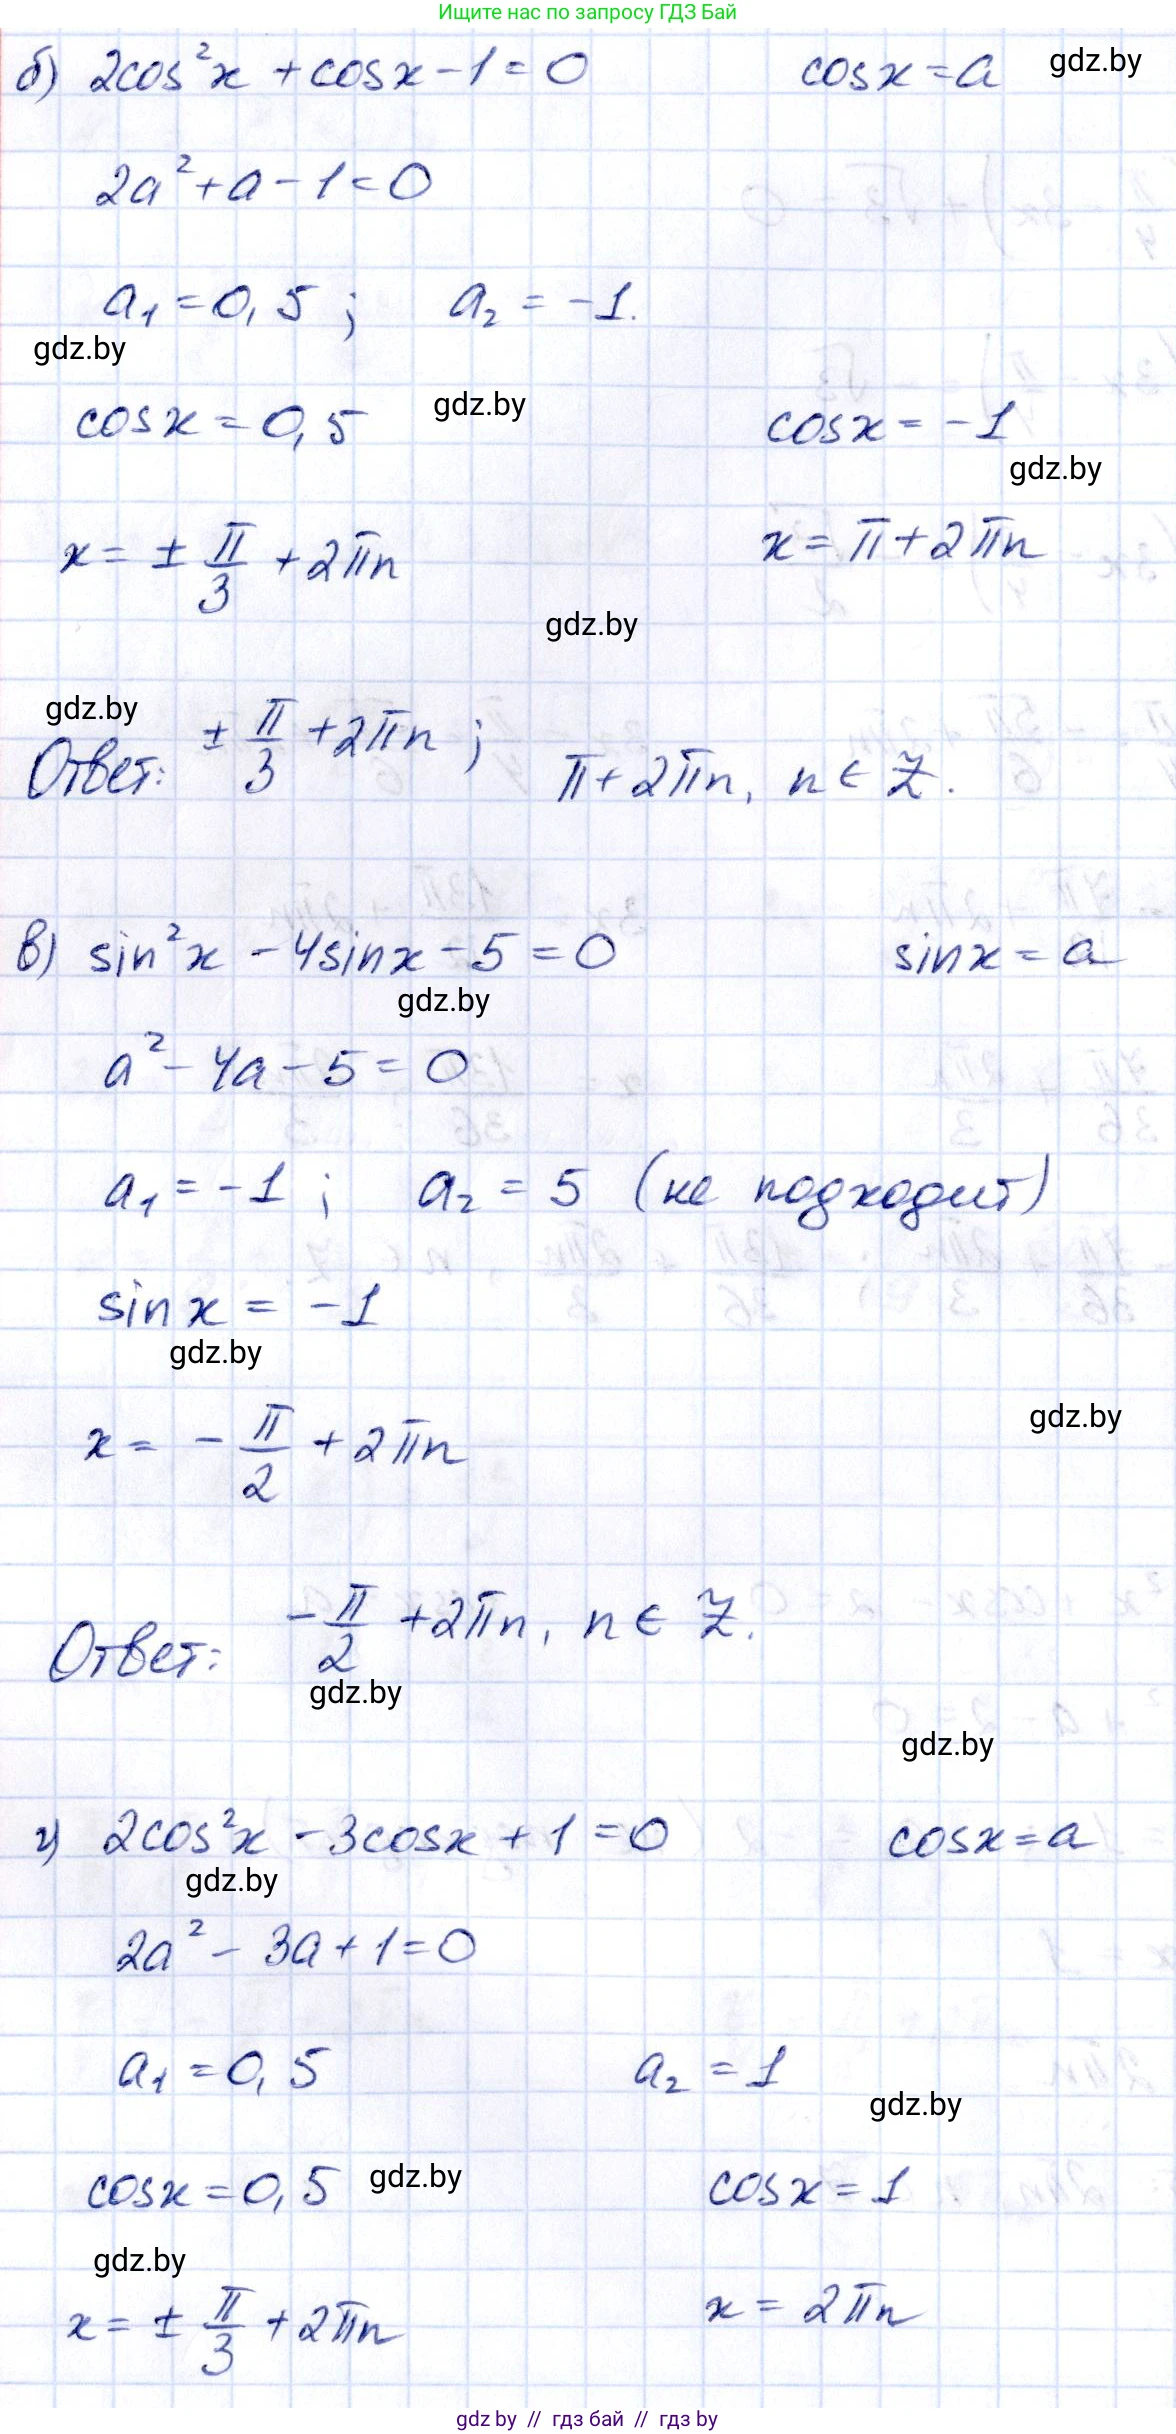 Ищите нас по запросу ГДЗ Бай
б) 2cos²x + cosx - 1 = 0    cosx = a    gdz.by
2a² + a - 1 = 0
a₁ = 0,5 ;    a₂ = -1.
gdz.by
cosx = 0,5    gdz.by    cosx = -1
gdz.by
x = ± π/3 + 2πn    x = π + 2πn
gdz.by
gdz.by
Ответ: ± π/3 + 2πn ;    π + 2πn, n ∈ Z.
в) sin²x - 4sinx - 5 = 0    sinx = a
gdz.by
a² - 4a - 5 = 0
a₁ = -1 ;    a₂ = 5 (не подходит)
sinx = -1
gdz.by
gdz.by
x = - π/2 + 2πn
Ответ: - π/2 + 2πn, n ∈ Z.
gdz.by
gdz.by
г) 2cos²x - 3cosx + 1 = 0    cosx = a
gdz.by
2a² - 3a + 1 = 0
a₁ = 0,5    a₂ = 1
gdz.by
cosx = 0,5    gdz.by    cosx = 1
gdz.by
x = ± π/3 + 2πn    x = 2πn
gdz by // гдз бай // гдз by